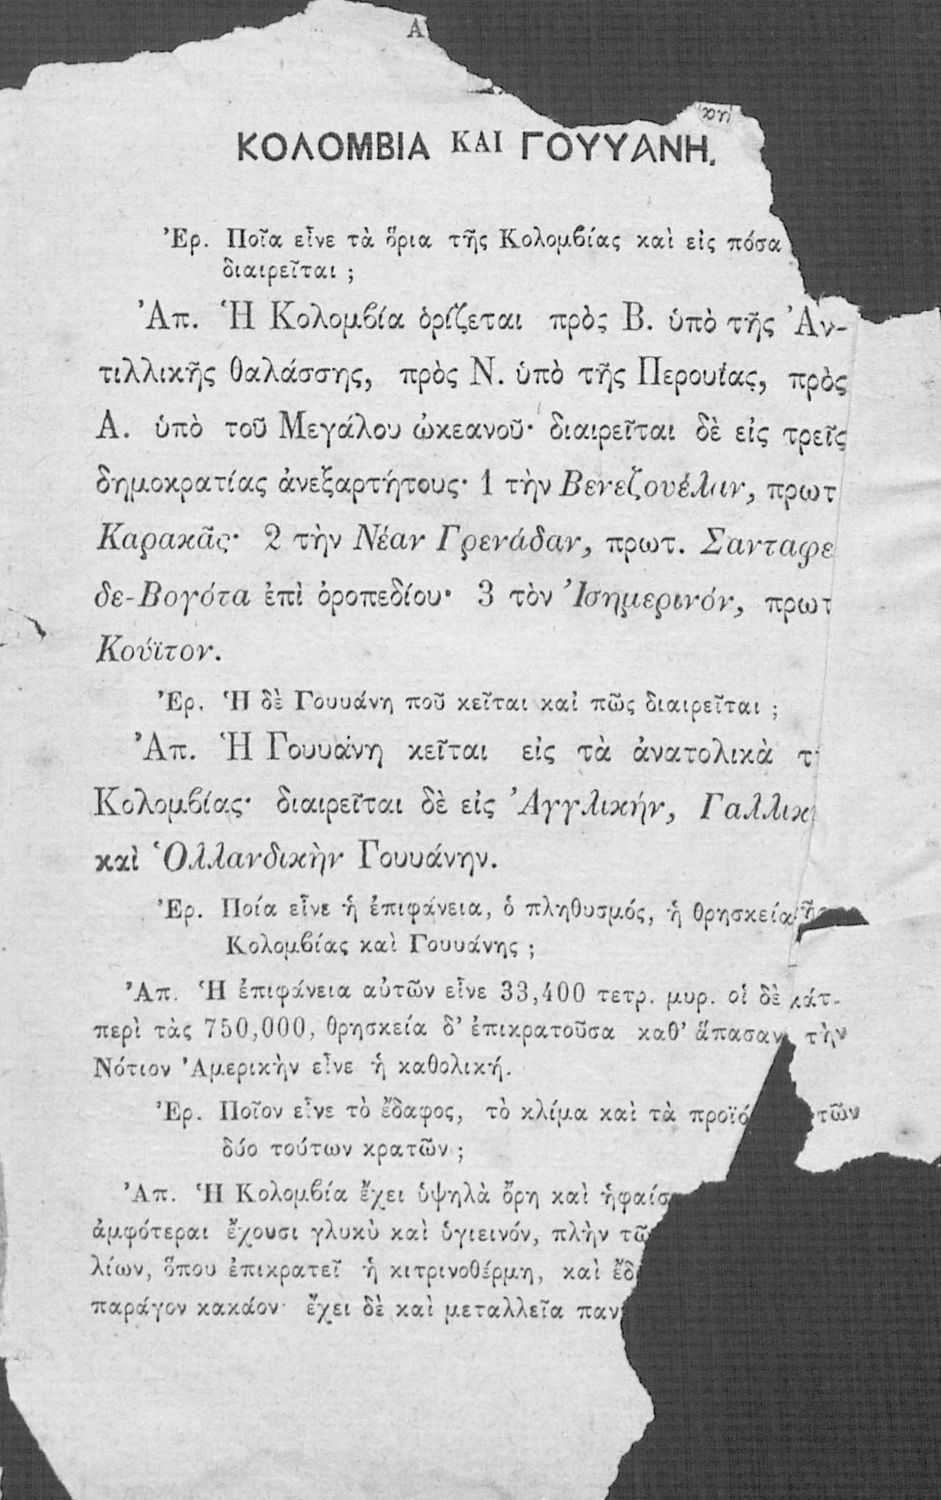 Α
ΚΟΛΟΜΒΙΑ ΚΑΙ ΓΟΥΥΑΝΗ.
Ἐρ. Ποῖα εἶνε τὰ ὅρια τῆς Κολομβίας καὶ εἰς πόσα
διαιρεῖται ;
Ἀπ. Ἡ Κολομβία ὁρίζεται πρὸς Β. ὑπὸ τῆς Ἀν-
τιλλικῆς θαλάσσης, πρὸς Ν. ὑπὸ τῆς Περουίας, πρὸς
Α. ὑπὸ τοῦ Μεγάλου ὠκεανοῦ· διαιρεῖται δὲ εἰς τρεῖς
δημοκρατίας ἀνεξαρτήτους· 1 τὴν Βενεζουέλαν, πρωτ
Καρακᾶς· 2 τὴν Νέαν Γρενάδαν, πρωτ. Σανταφε
δε-Βογότα ἐπὶ ὀροπεδίου· 3 τὸν Ἰσημερινόν, πρωτ
Κούϊτον.
Ἐρ. Ἡ δὲ Γουυάνη ποῦ κεῖται καὶ πῶς διαιρεῖται ;
Ἀπ. Ἡ Γουυάνη κεῖται εἰς τὰ ἀνατολικὰ τ
Κολομβίας· διαιρεῖται δὲ εἰς Ἀγγλικήν, Γαλλικ
καὶ Ὁλλανδικὴν Γουυάνην.
Ἐρ. Ποία εἶνε ἡ ἐπιφάνεια, ὁ πληθυσμός, ἡ θρησκεία
Κολομβίας καὶ Γουυάνης ;
Ἀπ. Ἡ ἐπιφάνεια αὐτῶν εἶνε 33,400 τετρ. μυρ. οἱ δὲ κάτ.
περὶ τὰς 750,000, θρησκεία δ' ἐπικρατοῦσα καθ' ἅπασαν τὴν
Νότιον Ἀμερικὴν εἶνε ἡ καθολική.
Ἐρ. Ποῖον εἶνε τὸ ἔδαφος, τὸ κλίμα καὶ τὰ προϊό τῶν
δύο τούτων κρατῶν ;
Ἀπ. Ἡ Κολομβία ἔχει ὑψηλὰ ὄρη καὶ ἡφαίσ
ἀμφότεραι ἔχουσι γλυκὺ καὶ ὑγιεινόν, πλὴν τῶ
λίων, ὅπου ἐπικρατεῖ ἡ κιτρινοθέρμη, καὶ ἔδ
παράγον κακάον· ἔχει δὲ καὶ μεταλλεῖα παν